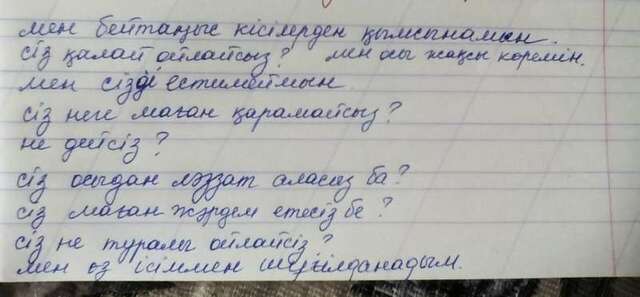 мен бейтаңыс кісілерден қымсынамын.
сіз қалай ойлайсыз? мен осы жақсы көремін.
мен сізді естимеймын.
сіз неге маған қарамайсыз?
не дейсіз?
сіз осыдан ләззат аласыз ба?
сіз маған жәрдем етесіз бе?
сіз не туралы ойлайсіз?
мен өз ісіммен